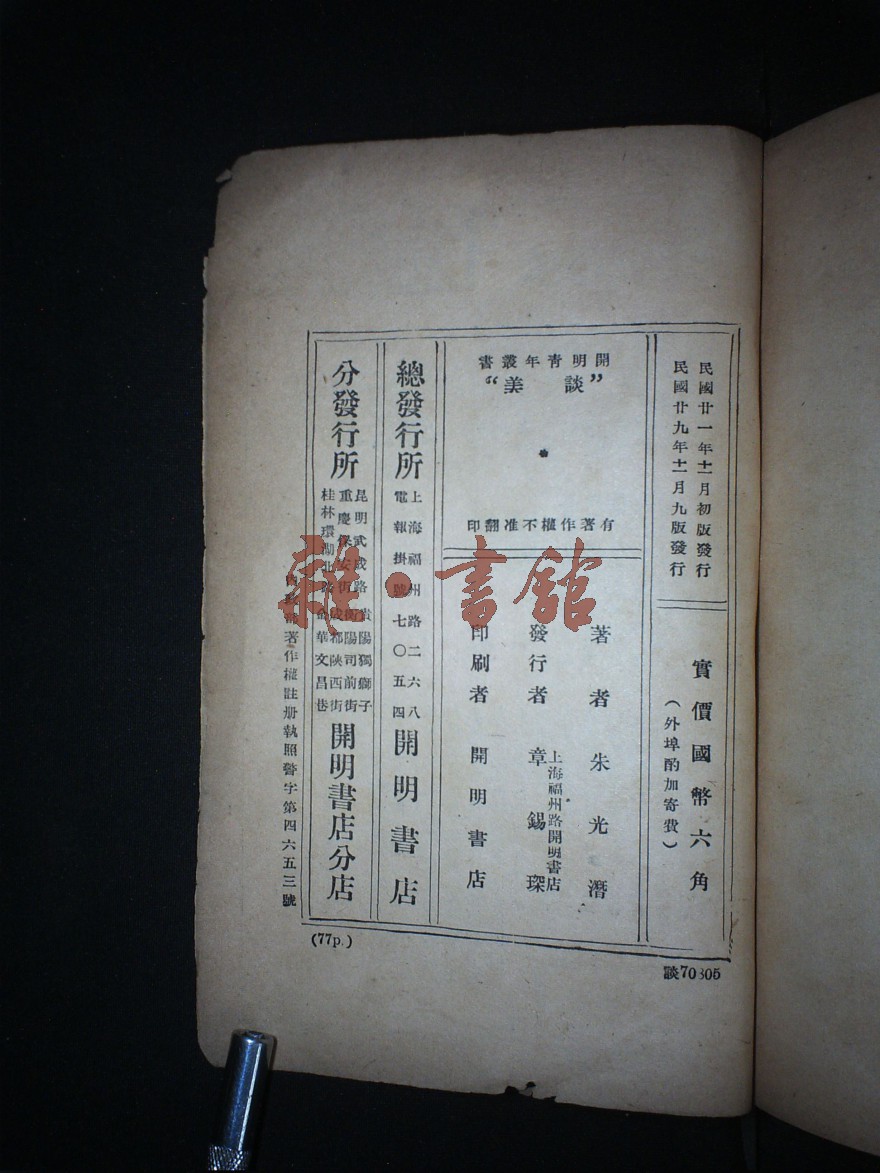 民國廿一年十一月初版發行
民國廿九年十一月九版發行
實價國幣六角
(外埠酌加寄費)
開明青年叢書
“談美”
有著作權不准翻印
著者 朱光潛
發行者 章錫琛
上海福州路開明書店
印刷者 開明書店
總發行所 上海福州路二六八 開明書店
電報掛號七〇五四
分發行所
昆明武成路 貴陽獨獅子
重慶保安街 衡陽司前街
桂林環湖北路 成都陝西街
金華文昌巷
開明書店分店
內政部著作權註册執照警字第四六五三號
(77p.)
談70305
雜·書館